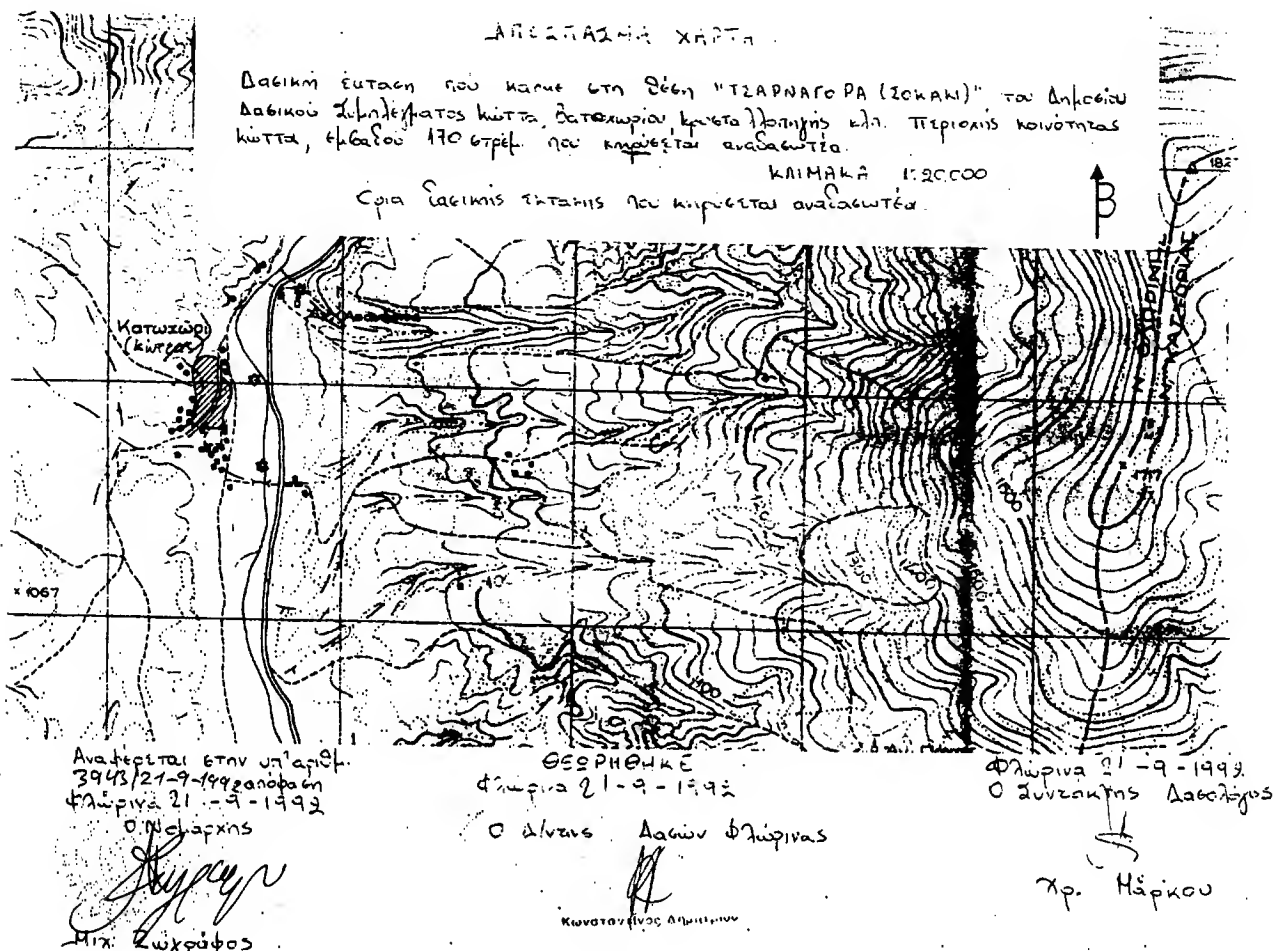 ΑΠΟΣΠΑΣΜΑ ΧΑΡΤΗ
Δασική έκταση που κάηκε στη θέση "ΤΣΑΡΝΑΓΟΡΑ (ΣΟΚΑΝ)", του Δημοσίου
Δασικού Συμπλέγματος Κώττα, Βατοχωρίου, Κρυσταλλοπηγής κλπ. Περιοχής κοινότητας
Κώττα, εμβαδού 170 στρεμ. που κηρύσεται αναδασωτέα.
ΚΛΙΜΑΚΑ 1:20.000
Όρια δασικής έκτασης που κηρύσεται αναδασωτέα.
Β
Κατωχώρι
x 1067
1500
1100
Αναφέρεται στην υπ' αριθμ.
3943/21-9-1992 απόφαση
Φλώρινα 21-9-1992
Ο Νομάρχης
Μιχ. Ζωγράφος
ΘΕΩΡΗΘΗΚΕ
Φλώρινα 21-9-1992
Ο Δ/ντης Δασών Φλώρινας
Κωνσταντίνος Δημητρίου
Φλώρινα 21-9-1992
Ο Συντάκτης Δασολόγος
Χρ. Μάρκου